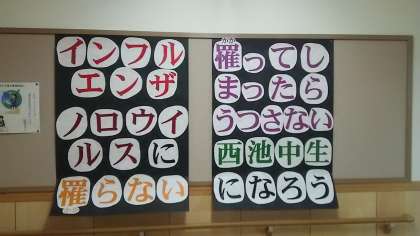 インフル
エンザ
ノロウイ
ルスに
罹らない
罹ってし
まったら
うつさない
西池中生
になろう